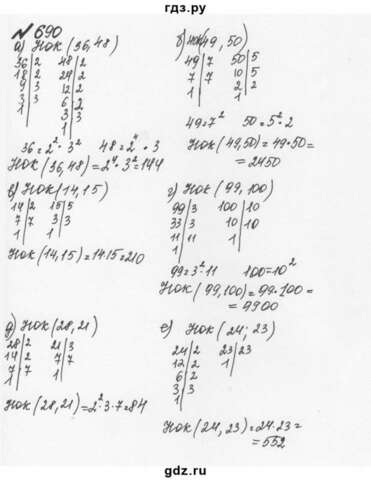 гдз.ру
№ 690
а) НОК (36, 48)
36 | 2   48 | 2
18 | 2   24 | 2
9 | 3   12 | 2
3 | 3   6 | 2
1 |   3 | 3
1 |
36 = 2² · 3²   48 = 2⁴ · 3
НОК (36, 48) = 2⁴ · 3² = 144
б) НОК (49, 50)
49 | 7   50 | 5
7 | 7   10 | 5
1 |   2 | 2
1 |
49 = 7²   50 = 5² · 2
НОК (49, 50) = 49 · 50 =
= 2450
в) НОК (14, 15)
14 | 2   15 | 5
7 | 7   3 | 3
1 |   1 |
НОК (14, 15) = 14·15 = 210
г) НОК (99, 100)
99 | 3   100 | 10
33 | 3   10 | 10
11 | 11   1 |
1 |
99 = 3² · 11   100 = 10²
НОК (99, 100) = 99 · 100 =
= 9900
д) НОК (28, 21)
28 | 2   21 | 3
14 | 2   7 | 7
7 | 7   1 |
1 |
НОК (28, 21) = 2² · 3 · 7 = 84
е) НОК (24; 23)
24 | 2   23 | 23
12 | 2   1 |
6 | 2
3 | 3
1 |
НОК (24, 23) = 24 · 23 =
= 552
gdz.ru